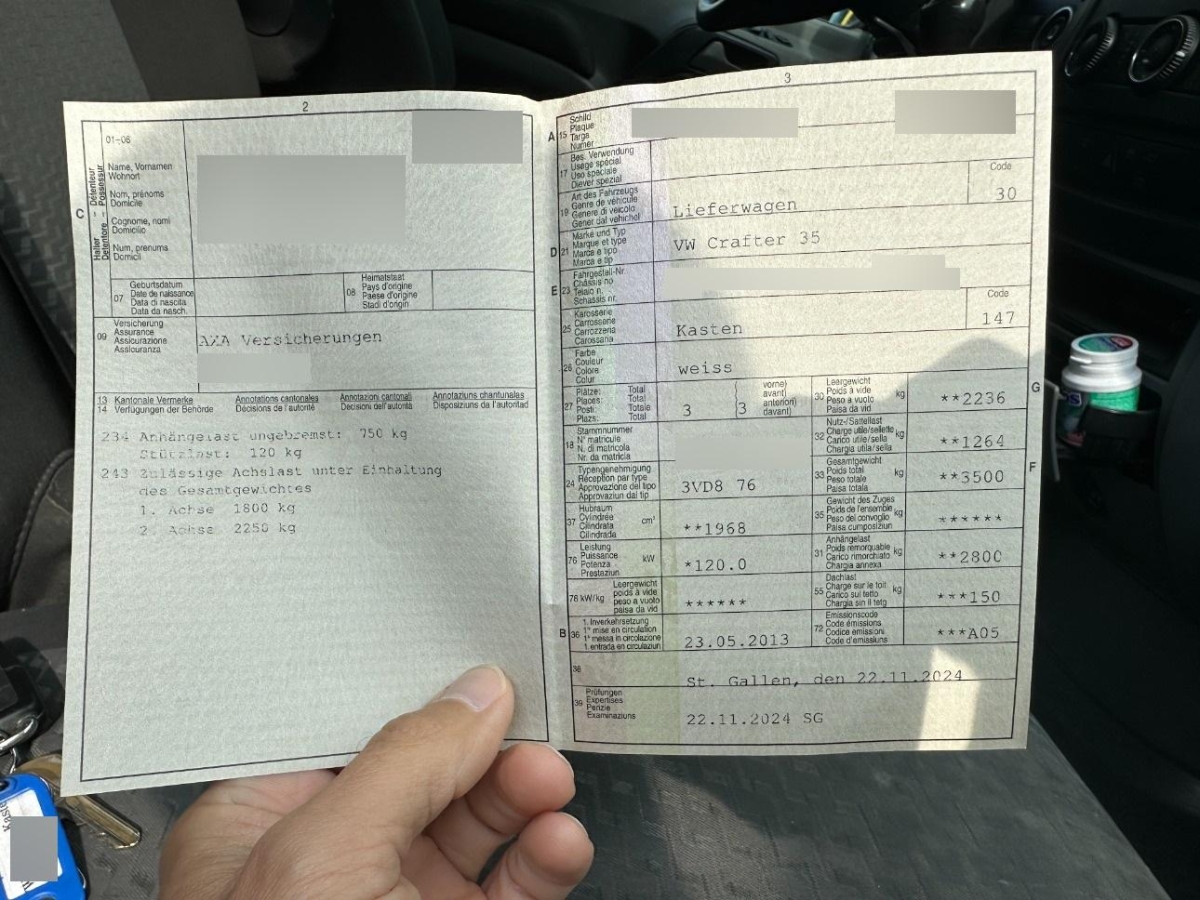 2
01-06
C
Halter – Détenteur
Detentore – Possessur
Name, Vornamen
Wohnort
Nom, prénoms
Domicile
Cognome, nomi
Domicilio
Num, prenums
Domicil
07
Geburtsdatum
Date de naissance
Data di nascita
Data da nasch.
08
Heimatstaat
Pays d'origine
Paese d'origine
Stadi d'origin
09
Versicherung
Assurance
Assicurazione
Assicuranza
AXA Versicherungen
13 Kantonale Vermerke Annotations cantonales Annotazioni cantonali Annotaziuns chantunalas
14 Verfügungen der Behörde Décisions de l'autorité Decisioni dell'autorità Disposiziuns da l'autoritad
234 Anhängelast ungebremst: 750 kg
Stützlast: 120 kg
243 Zulässige Achslast unter Einhaltung
des Gesamtgewichtes
1. Achse 1800 kg
2. Achse 2250 kg
3
A 15
Schild
Plaque
Targa
Numer
17
Bes. Verwendung
Usage spécial
Uso speciale
Diever spezial
19
Art des Fahrzeugs
Genre de véhicule
Genere di veicolo
Gener dal vehichel
Lieferwagen
Code
30
D 21
Marke und Typ
Marque et type
Marca e tipo
Marca e tip
VW Crafter 35
E 23
Fahrgestell-Nr.
Châssis no
Telaio n.
Schassis nr.
25
Karosserie
Carrosserie
Carrozzeria
Carossaria
Kasten
Code
147
26
Farbe
Couleur
Colore
Colur
weiss
27
Plätze: Total
Places: Total
Posti: Totale
Plazs: Total
3
3
vorne)
avant)
anteriori)
davant)
G
30
Leergewicht
Poids à vide
Peso a vuoto
Paisa da vid
kg
**2236
18
Stammnummer
N° matricule
N. di matricola
Nr. da matricla
32
Nutz-/Sattellast
Charge utile/sellette
Carico utile/sella
Chargia utila/sella
kg
**1264
24
Typengenehmigung
Réception par type
Approvazione del tipo
Approvaziun dal tip
3VD8 76
F
33
Gesamtgewicht
Poids total
Peso totale
Paisa totala
kg
**3500
37
Hubraum
Cylindrée
Cilindrata
Cilindrada
cm³
**1968
35
Gewicht des Zuges
Poids de l'ensemble
Peso del convoglio
Paisa cumposiziun
kg
******
76
Leistung
Puissance
Potenza
Prestaziun
kW
*120.0
31
Anhängelast
Poids remorquable
Carico rimorchiato
Chargia annexa
kg
**2800
78 kW/kg
Leergewicht
poids à vide
peso a vuoto
paisa da vid
******
55
Dachlast
Charge sur le toit
Carico sul tetto
Chargia sin il tetg
kg
***150
B 36
1. Inverkehrsetzung
1re mise en circulation
1a messa in circolazione
1. entrada en circulaziun
23.05.2013
72
Emissionscode
Code émissions
Codice emissioni
Code d'emissiuns
***A05
38
St. Gallen, den 22.11.2024
39
Prüfungen
Expertises
Perizie
Examinaziuns
22.11.2024 SG